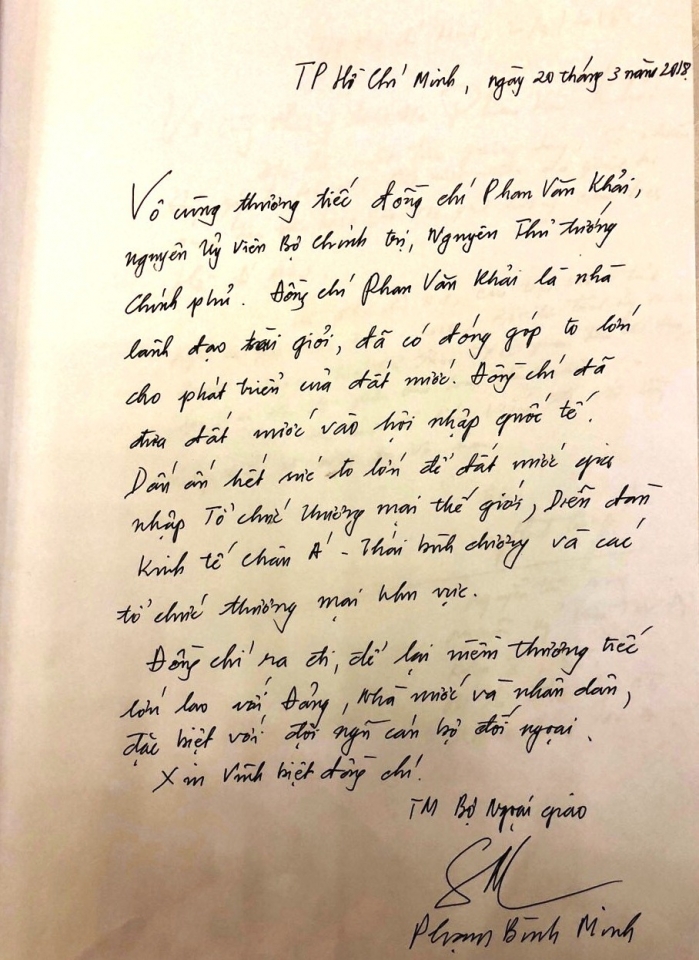 TP Hồ Chí Minh, ngày 20 tháng 3 năm 2018
Vô cùng thương tiếc đồng chí Phan Văn Khải,
nguyên Uỷ viên Bộ chính trị, Nguyên Thủ tướng
Chính phủ. Đồng chí Phan Văn Khải là nhà
lãnh đạo tài giỏi, đã có đóng góp to lớn
cho phát triển của đất nước. Đồng chí đã
đưa đất nước vào hội nhập quốc tế.
Dấu ấn hết sức to lớn để đất nước gia
nhập Tổ chức thương mại thế giới, Diễn đàn
Kinh tế châu Á - Thái bình dương và các
tổ chức thương mại khu vực.
Đồng chí ra đi, để lại niềm thương tiếc
lớn lao với Đảng, Nhà nước và nhân dân,
đặc biệt với đội ngũ cán bộ đối ngoại.
Xin Vĩnh biệt đồng chí.
TM Bộ Ngoại giao
Phạm Bình Minh